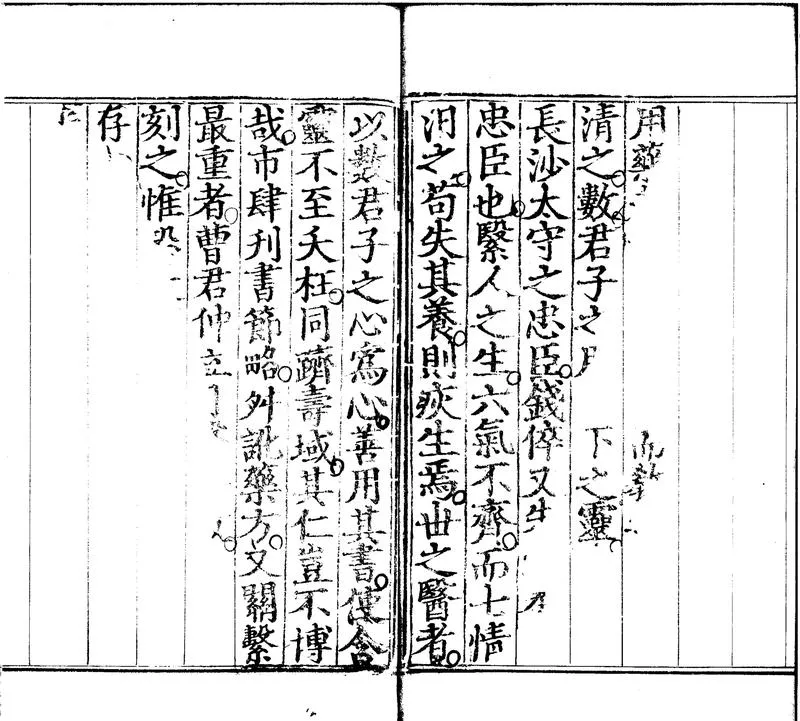 用藥
清之數君子之 下之靈
長沙太守之忠臣錢倅又
忠臣也繄人之生六氣不齊而七情
汨之苟失其養則疢生焉世之醫者
以數君子之心寫心善用其書使含
靈不至夭枉同躋壽域其仁豈不博
哉市肆刊書節略舛訛藥方又關繫
最重者曹君仲立
刻之惟
存